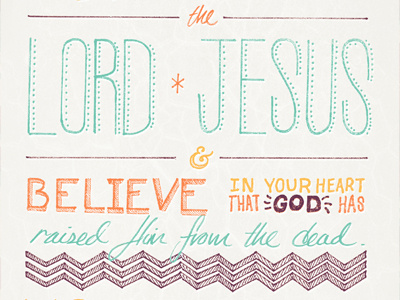 the
LORD * JESUS
&
BELIEVE IN YOUR HEART
THAT GOD HAS
raised Him from the dead.